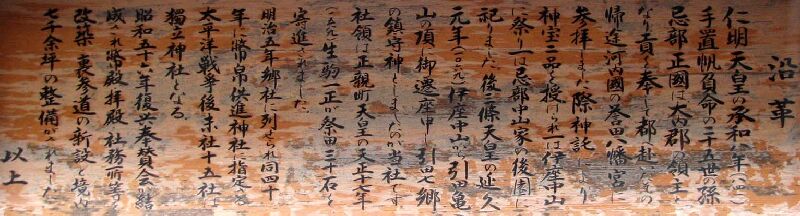 沿革
仁明天皇の承和八年(八四一)
手置帆負命の二十五世の孫
忌部正國は大内郡の領主と
なり貢を奉じて都へ赴いたその
帰途河内國の誉田八幡宮に
参拝しました際神託により
神宝二品を授けられ一は伊座中山
に祭り一は忌部中山家の後園に
祀りました。後三條天皇の延久
元年(一〇六九)伊座中山から引田亀
山の頂に御遷座申し引田七郷
の鎮守神としましたのが当社です
社領は正親町天皇の天正十七年
生駒一正が祭田三十石を
寄進されました。
明治五年郷社に列せられ同四十
年に幣帛供進神社に指定さ
太平洋戦争後末社十五社を
獨立神社となる
昭和五十 年復興奉賛会結
成され幣殿拝殿社務所等を
改築 裏参道の新設と境内
七千余坪の整備がされました
以上